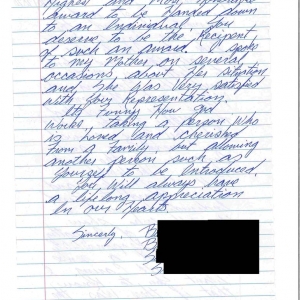 Highest and Most Honorable
award to be handed down
to an Individual you
deserve to be the Recipient
of such an award. I spoke
to my Mother on several
occasions about her situation
and she was very satisfied
with your Representation.
Its Funny how God
works, taking a person who
is loved and cherished
from a family, but allowing
another person such as
yourself to be Introduced.
You will always have
a lifelong appreciation
In our hearts.
Sincerly,